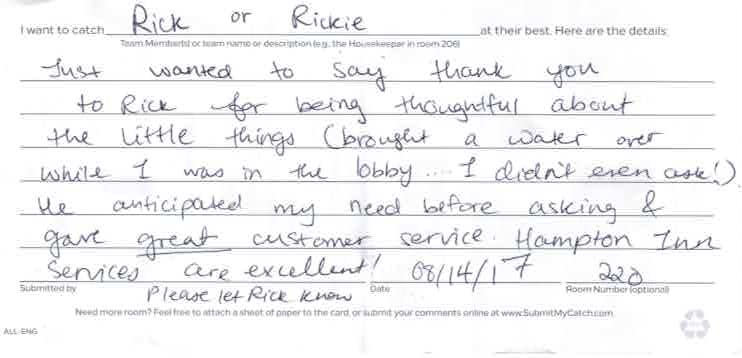 I want to catch Rick or Rickie at their best. Here are the details:
Team Member(s) or team name or description (e.g., the Housekeeper in room 206)
Just wanted to say thank you
to Rick for being thoughtful about
the little things (brought a water over
while I was in the lobby .... I didn't even ask!)
He anticipated my need before asking &
gave great customer service. Hampton Inn
Services are excellent! 08/14/17 220
Submitted by Please let Rick know Date Room Number (optional)
Need more room? Feel free to attach a sheet of paper to the card, or submit your comments online at www.SubmitMyCatch.com.
ALL-ENG